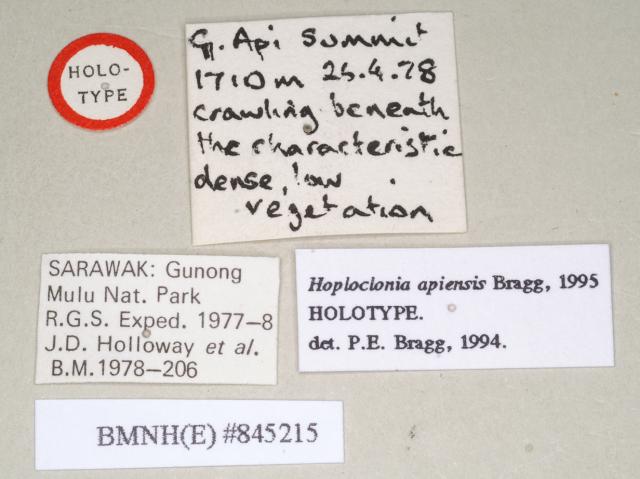 HOLO-
TYPE
G. Api summit
1710m 26.4.78
crawling beneath
the characteristic
dense, low
vegetation
SARAWAK: Gunong
Mulu Nat. Park
R.G.S. Exped. 1977–8
J.D. Holloway et al.
B.M.1978–206
Hoploclonia apiensis Bragg, 1995
HOLOTYPE.
det. P.E. Bragg, 1994.
BMNH(E) #845215